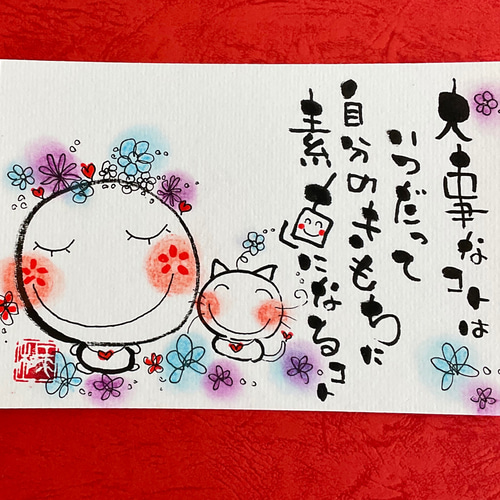 大事なコトは
いつだって
自分のきもちに
素直になるコト